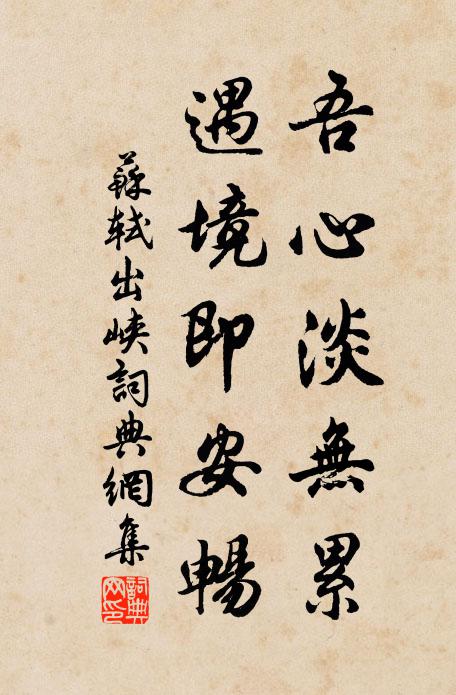 吾心淡無累
遇境即安暢
蘇軾出峽詞典網集
詞典網印